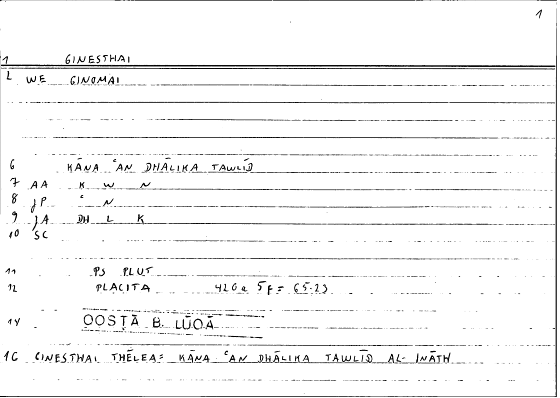 1
1 GINESTHAI
L WE GINOMAI
6 KĀNA ʿAN DHĀLIKA TAWLĪD
7 AA K W N
8 JP ʿ N
9 JA DH L K
10 SC
11 PS PLUT
12 PLACITA 420a 5f = 65.23
14 QOSṬĀ B. LŪQĀ
16 GINESTHAI THĒLEA= KĀNA ʿAN DHĀLIKA TAWLĪD AL- INĀTH